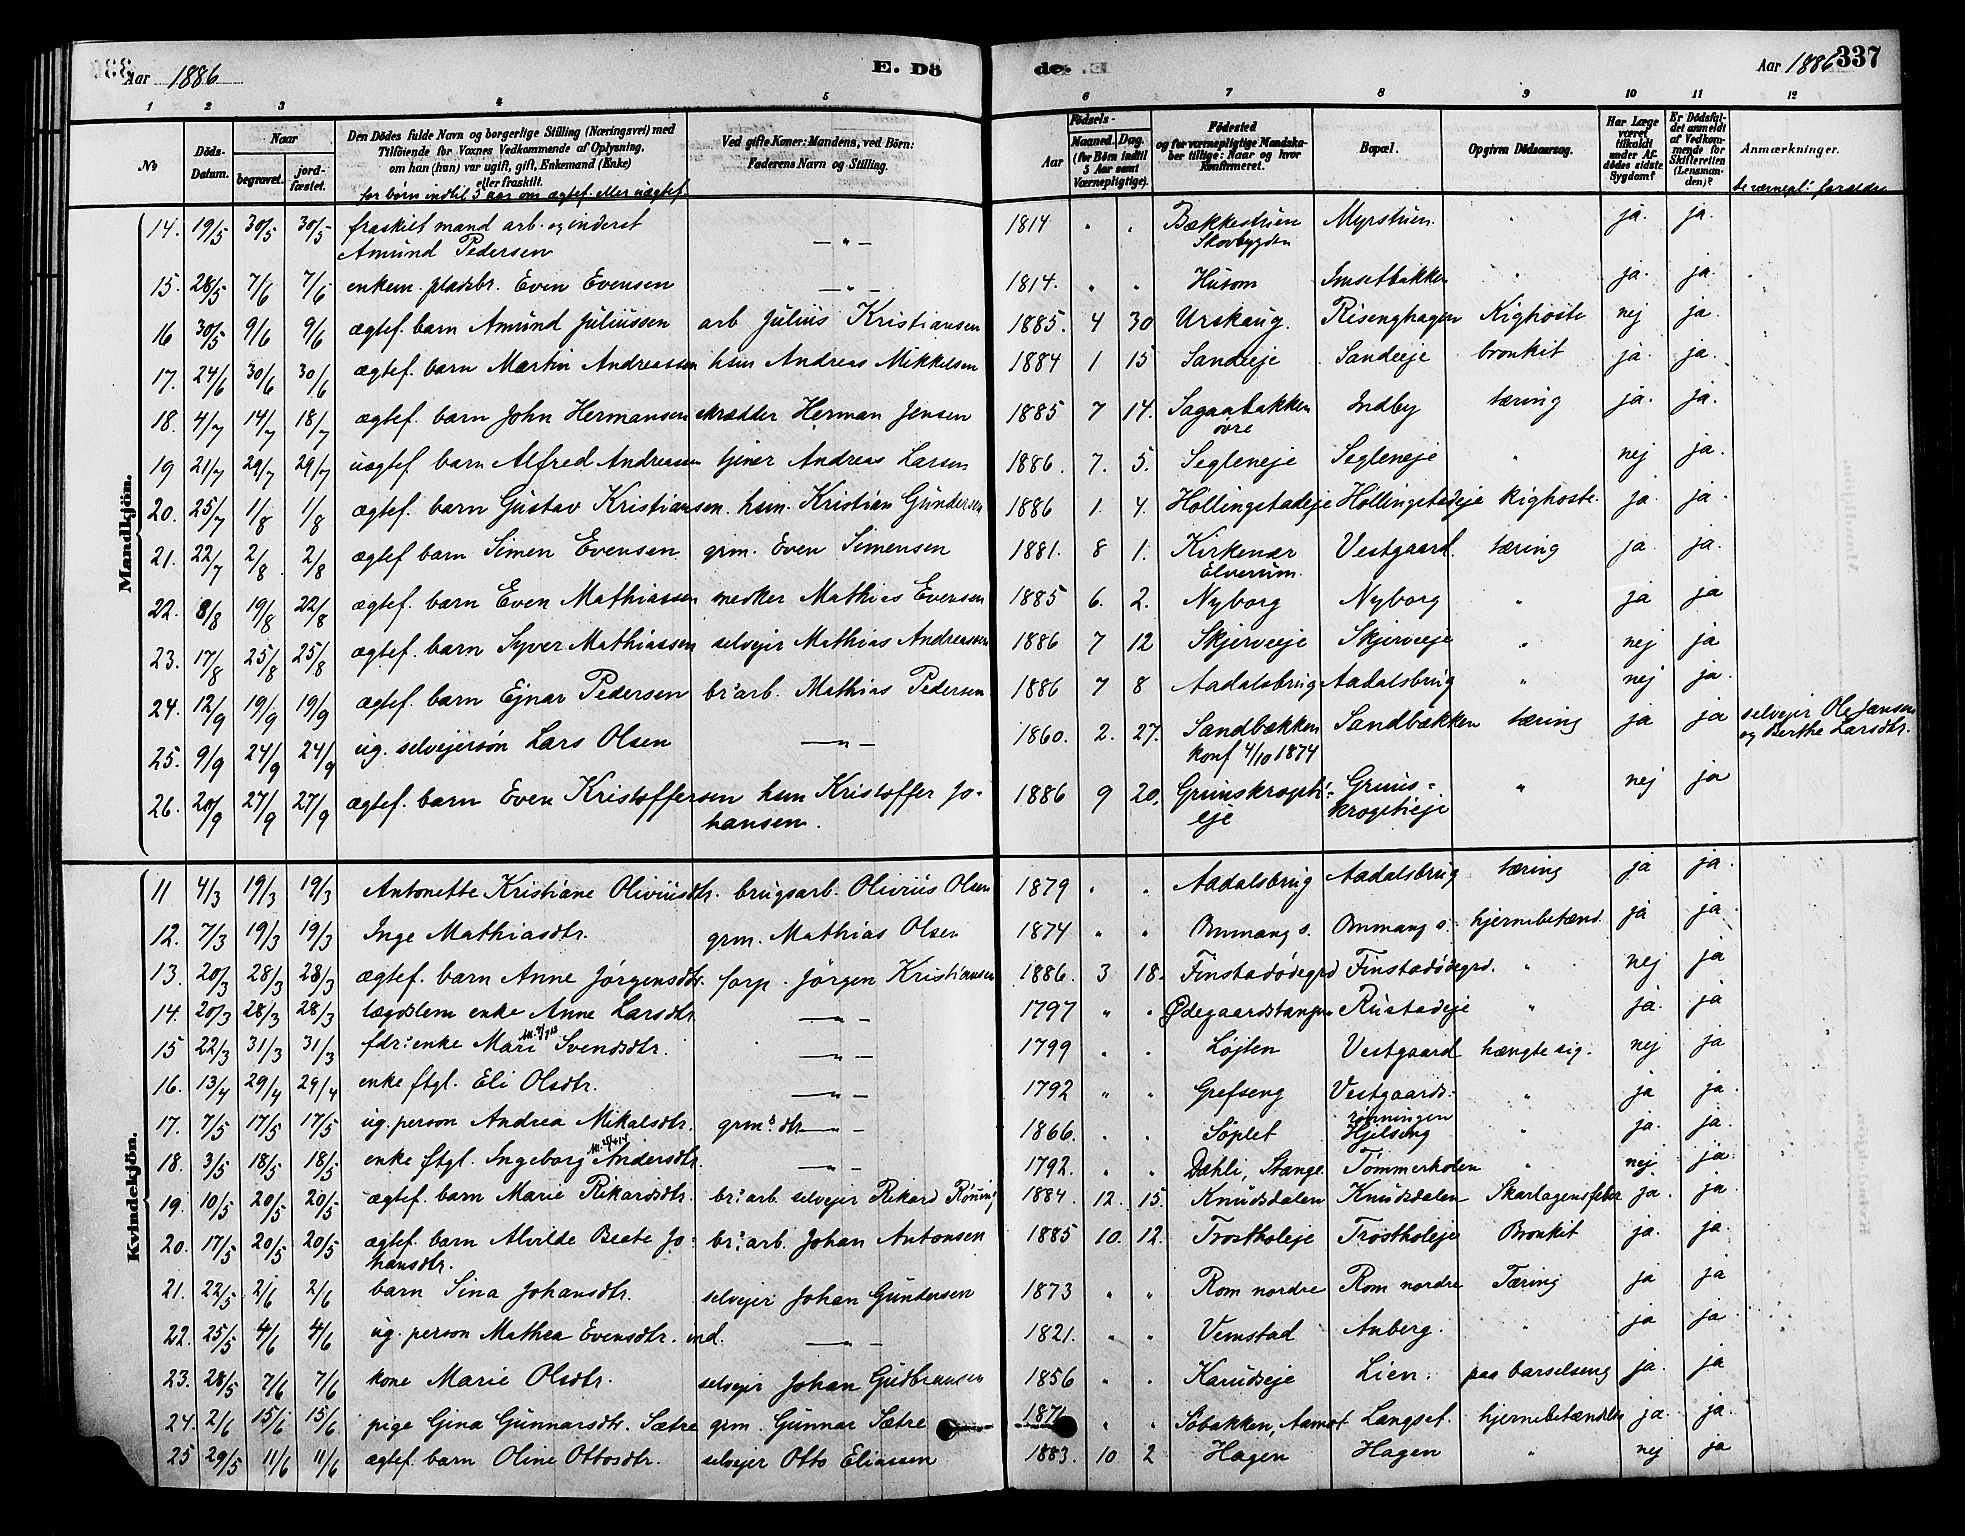 Aar 1886 E. Dö de. Aar 1886 337
1 2 3 4 5 6 7 8 9 10 11 12
No Döds-Datum. Naar begravet. jordfæstet. Den Dödes fulde Navn og borgerlige Stilling (Næringsvei) med Tilföiende for Voxnes Vedkommende af Oplysning, om han (hun) var ugift, gift, Enkemand (Enke) eller fraskilt. for børn indtil 5 aar om ægtef. eller uægtef. Ved gifte Koner: Mandens, ved Börn: Faderens Navn og Stilling. Födsels- Aar Maaned. Dag. (for Börn indtil 5 Aar samt Værnepligtige). Födested og for værnepligtige Mandskaber tillige: Naar og hvor Konfirmeret. Bopæl. Opgiven Dödsaarsag. Har Læge været tilkaldt under Afdödes sidste Sygdom? Er Dödsfaldet anmeldt af Vedkommende for Skifteretten (Lensmanden)? Anmærkninger. be værnepl: forældre
Mandkjön.
14. 19/5 30/5 30/5 fraskilt mand arb. og inderst — " — 1814 " " Bækkestuen Myrstuen. " ja. ja.
Amund Pedersen Skovbygden
15. 28/5 7/6 7/6 enkem. pladsbr. Even Evensen — " — 1814. " " Husom Imsetbakken " ja. ja.
16 30/5 9/6 9/6 ægtef. barn Amund Juliussen arb Julius Kristiansen 1885. 4 30 Urskaug. Risenghagen Kighoste nej ja.
17. 24/6 30/6 30/6 ægtef. barn Martin Andreassen hsm Andreas Mikkelsen 1884 1 15 Sandeeje Sandeeje bronkit ja. ja.
18. 4/7 14/7 18/7 ægtef. barn John Hermansen skrædder Herman Jensen 1885 7 14. Sagaabakken Indby tæring ja. ja.
øvre
19 21/7 29/7 29/7 uægtef. barn Alfred Andreasen tjener Andreas Larsen 1886. 7. 5. Segleneje Segleneje " nej ja.
20. 25/7 1/8 1/8 ægtef. barn Gustav Kristiansen. hsm. Kristian Gundersen 1886 1. 4. Hollingstadeje Hollingstadeje kighoste. ja ja
21. 22/7 2/8 2/8 ægtef barn Simen Evensen grm. Even Simensen 1881. 8 1. Kirkenær Vestgaard tæring ja ja.
Elverum.
22. 8/8 19/8 22/8 ægtef. barn Even Mathiassen snedker Mathias Evensen 1885 6. 2. Nyborg Nyborg " ja ja
23. 17/8 25/8 25/8 ægtef. barn Syver Mathiassen selvejer Mathias Andreassen 1886 7 12 Skjerveeje Skjerveeje " nej ja
24. 12/9 19/9 19/9 ægtef. barn Ejnar Pedersen br:arb. Mathias Pedersen 1886 7 8 Aadalsbrug Aadalsbrug " nej ja.
25. 9/9 24/9 24/9 ug. selvejersøn Lars Olsen — " — 1860. 2. 27. Sandbækken Sandbækken tæring ja ja selvejer Ole Jansen
konf 4/10 1874 og Berthe Larsdtr.
26. 20/9 27/9 27/9 ægtef. barn Even Kristoffersen hsm Kristoffer Jo- 1886 9 20. Grunskroget- Gruns- " nej ja
hansen. eje krogetieje
Kvindekjön.
11 4/3 19/3 19/3 Antonette Kristiane Oliviusdtr. brugsarb. Olivius Olsen 1879 " " Aadalsbrug Aadalsbrug tæring ja ja.
12. 7/3 19/3 19/3 Inge Mathiasdtr. grm. Mathias Olsen 1874 " " Ommang s. Ommang s. hjernebetænd. ja ja.
13. 20/3 28/3 28/3 ægtef. barn Anne Jørgensdtr. forp. Jörgen Kristiansen 1886. 3 18. Finstadødegrd Finstadødegrd. " nej ja
14. 20/3 28/3 28/3 lægdslem enke Anne Larsdtr. — " — 1797 " " Ødegaardstangen Rustadeje " ja. ja
15 22/3 31/3 31/3 fdr: enke Mari Svendsdtr. — " — 1799 " " Løjten Vestgaard hængte sig. nej ja
16. 13/4 29/4 29/4 enke ftgl. Eli Olsdtr. — " — 1792 " " Grefseng Vestgaards- " ja ja.
rønningen
17. 7/5 17/5 17/5 ug. person Andrea Mikalsdtr. grms dtr — " — 1866. " " Søplet Hjelseng " ja. ja.
18. 3/5 18/5 18/5 enke ftgl. Ingeborg Andersdtr. — " — 1792. " " Dæhli, Stange Tømmerholen " nej ja.
19. 10/5 20/5 20/5 ægtef. barn Marie Rikardsdtr. br:arb. selvejer Rikard Røning 1884. 12. 15. Knudsdalen Knudsdalen Skarlagensfeber ja. ja.
20. 17/5 20/5 20/5 ægtef. barn Alvilde Beate Jo- br:arb. Johan Antonsen 1885 10. 12. Trostholeje Trostholeje Bronkit ja. ja.
hansdtr.
21. 22/5 2/6 2/6 barn Sina Johansdtr. selvejer Johan Gundersen 1873 " " Rom nordre Rom nordre Tæring ja ja
22. 25/5 4/6 4/6 ug. person Mathea Evensdtr. ind. — " — 1821. " " Vemstad Anberg. " ja ja
23. 28/5 7/6 7/6 kone Marie Olsdtr. selvejer Johan Gudbransen 1856 " " Karudseje Lien. paa barselseng ja. ja
24. 2/6 15/6 15/6 pige Gina Gunnarsdtr. Sætre grm. Gunnar Sætre 1871 " " Sobakken, Aamot Langset. hjernebetændelse ja. ja.
25 29/5 11/6 11/6 ægtef. barn Oline Ottosdtr. selvejer Otto Eliassen 1883. 10 2 Hagen Hagen " nej ja